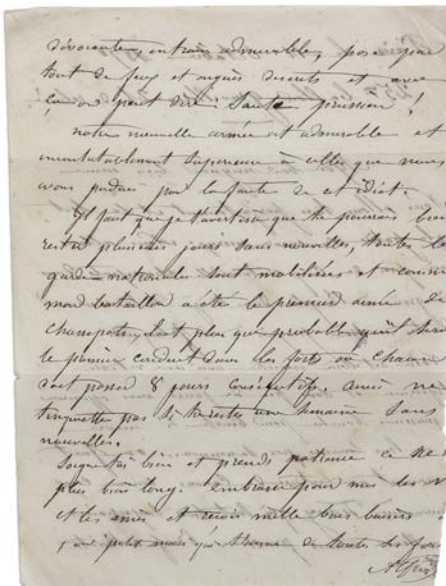 dévorante, entrain admirable, pose par
tout de feux et engins discrets et avec
ça on peut dire Saute prussien !
notre nouvelle armée est admirable et
inimitablement Supérieure à celles que nous
avons perdues par la faute de cet idiot.
Il faut que je t'avertisse que tu pourrais bien
rester plusieurs jours sans nouvelles, toutes les
gardes nationales sont mobilisées et comme
mon bataillon a été le premier armé de
chassepots, il est plus que probable qu'il sera
le premier conduit dans les forts ou chacun
doit passer 8 jours consécutifs. ainsi ne
t'inquiette pas si tu restes une semaine Sans
nouvelles.
Soigne toi bien et prends patience ce ne
plus bien long. embrasse pour moi les
et les amis et reçois mille bons baisers
petit mari qui t'aime de toutes ses forces